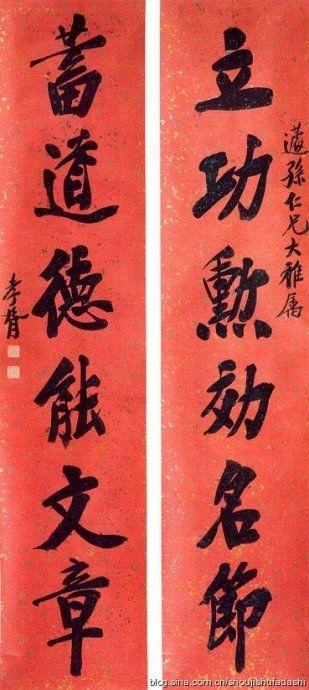 孫仁兄大雅属
立功勲効名節
蓄道德能文章
李
blog.sina.com.cn/shoujishufadashi